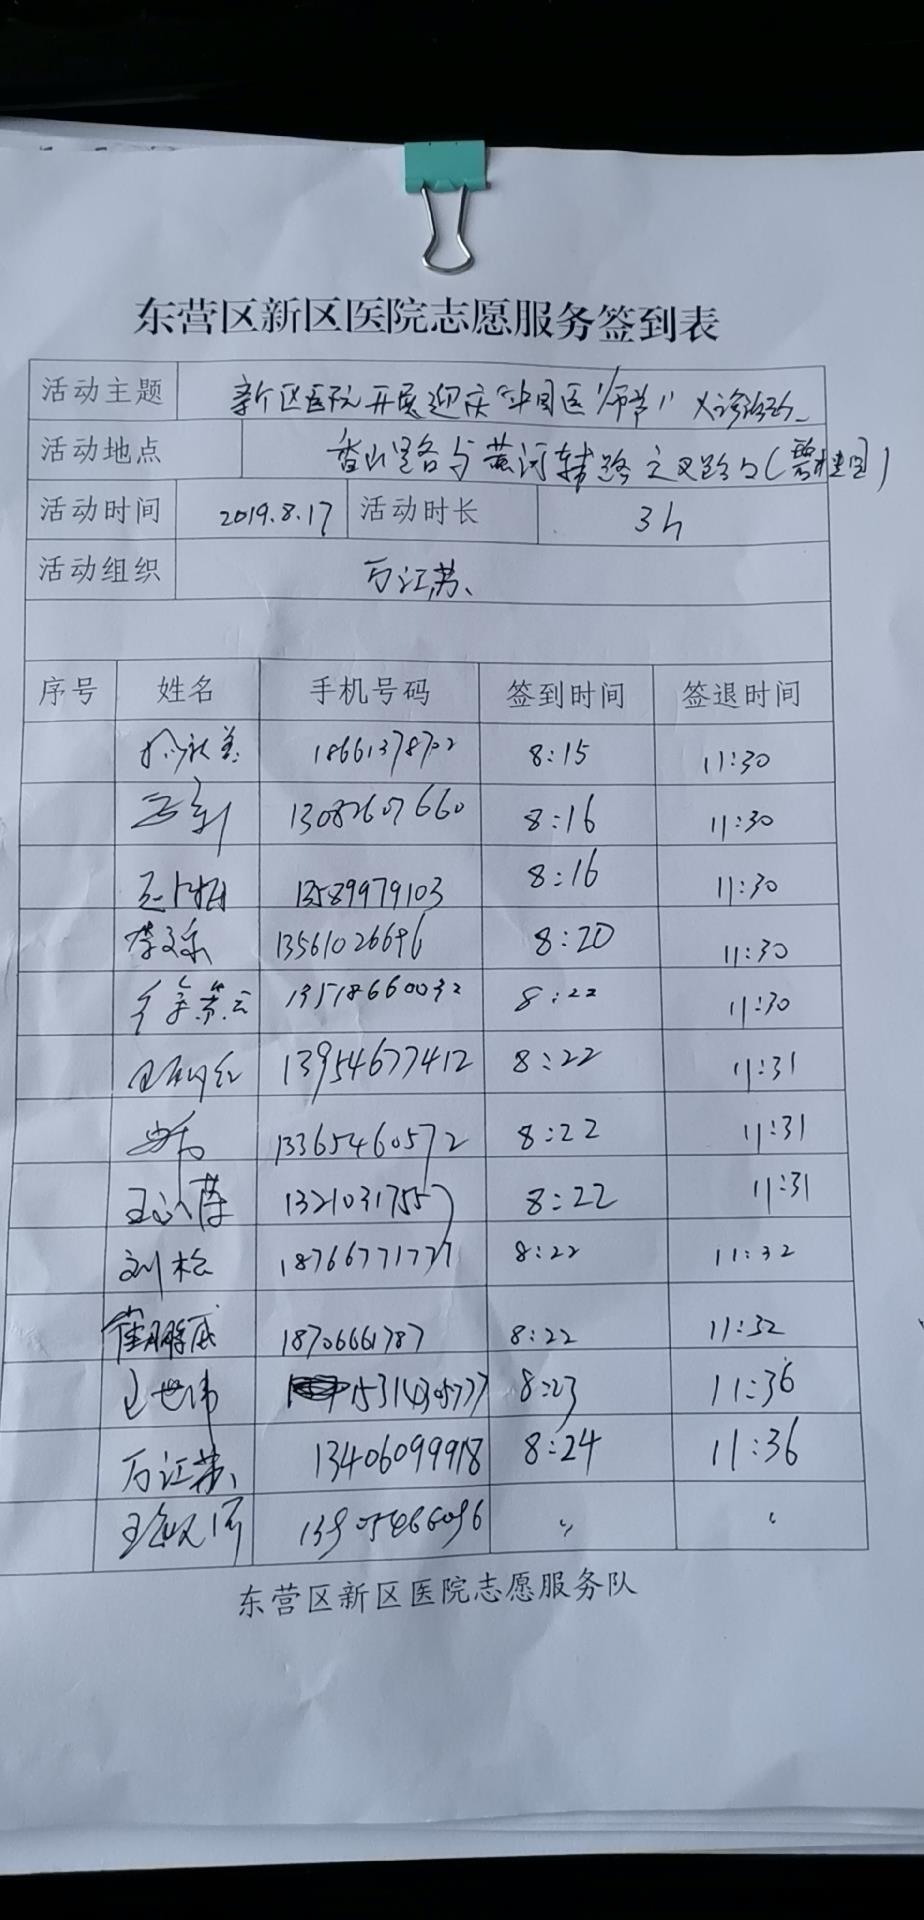 东营区新区医院志愿服务签到表
活动主题 新区医院开展迎庆"中国医师节"义诊活动
活动地点 香山路与黄河辅路交叉路口(碧桂园)
活动时间 2019.8.17 活动时长 3h
活动组织 万江苏
序号 姓名 手机号码 签到时间 签退时间
8:15 11:30
13082607660 8:16 11:30
13589979103 8:16 11:30
13561026696 8:20 11:30
8:22 11:30
13954677412 8:22 11:31
13365460572 8:22 11:31
13210317557 8:22 11:31
刘松 18766771777 8:22 11:32
崔鹏成 18706661787 8:22 11:32
王世伟 8:23 11:36
万江苏 13406099918 8:24 11:36
13905466096 〃 〃
东营区新区医院志愿服务队